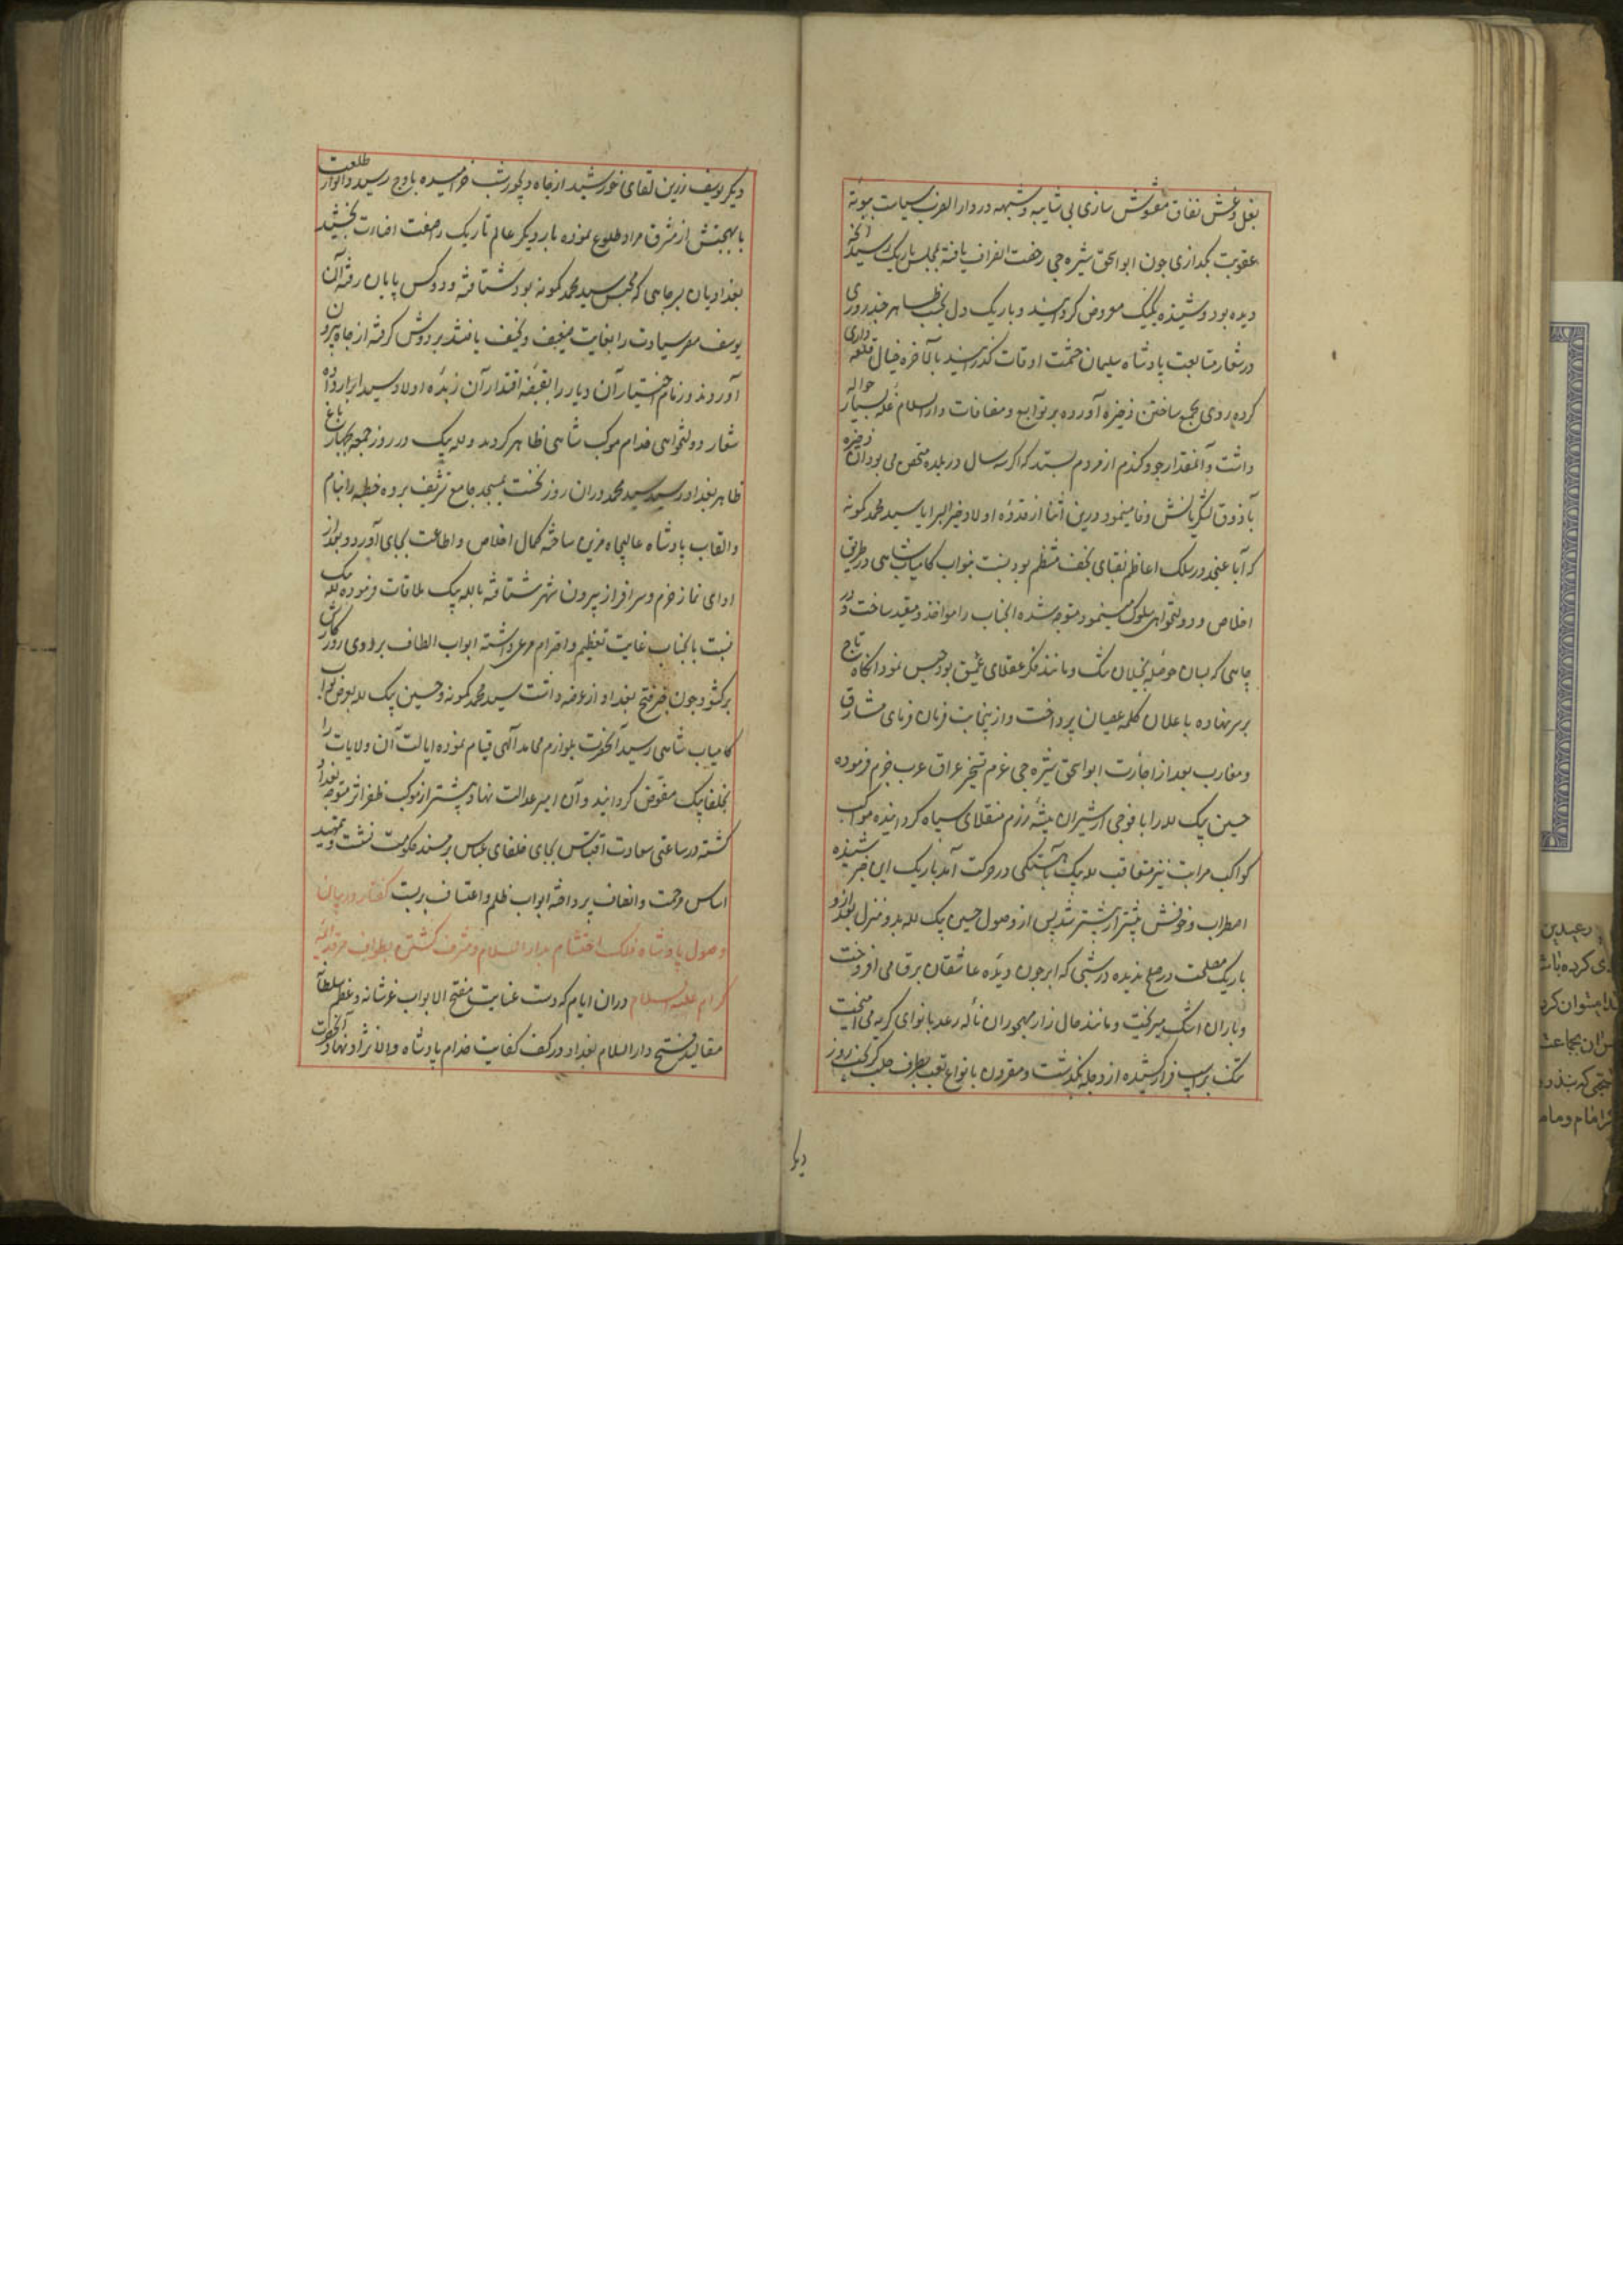 بغل و غش نفاق مغشوش سازی بی شایبه و شبهه در دار الضرب سیاست ببوته
عقوبت بگدازی چون ابو اسحق شیره چی رخصت انصراف یافته بمجلس باریک رسید آنچه
دیده بود و شنیده یک بیک معروض گردانید و باریک دل بحسب ظاهر چند روزی
در شعار متابعت پادشاه سلیمان حشمت اوقات گذرانید بالآخره خیال قلعه داری
کرده روی بجمع ساختن ذخیره آورده بر توابع و مضافات دار السلام غله بسیار حواله
داشت و آنمقدار جو و گندم از مردم بستد که اگر سه سال در بلده متحصن می بود آن ذخیره
بآذوق لشکریانش وفا مینمود درین اثنا از قدوه اولاد خیر البرایا سید محمد کمونه
که آبا عنجد در سلک اعاظم نقبای نجف منتظم بود نسبت بنواب کامیاب شاهی در طریق
اخلاص و دولتخواهی سلوک مینمود متوهم شده آنجناب را مواخذ و مقید ساخت و در
چاهی که بسان حوصله بخیلان تنگ و مانند فکر عقلای عمیق بود حبس نمود آنگاه تاج
بر سر نهاده باعلان کلمه عصیان پرداخت و ازینجانب فرمان فرمای مشارق
و مغارب بعد از اجازت ابو اسحق شیره چی عزم تسخیر عراق عرب جزم فرموده
حسین بیک لله را با فوجی از شیران بیشه رزم منقلای سپاه گردانیده موکب
کواکب مراتب نیز متعاقب لله بیک بآهستگی در حرکت آمد باریک این خبر شنیده
اضطراب و خوفش بیشتر از پیشتر شد پس از وصول حسین بیک لله بدو منزل بغداد و
باریک مصلحت در صلح ندیده در شبی که ابر چون دیده عاشقان برق می افروخت
و باران اشک میریخت و مانند حال زار مهجوران ناله رعد با نوای گریه می آمیخت
تنگ بر اسپ فرار کشیده از دجله بگذشت و مقرون بانواع تعب بطرف حلب گریخت روز
دیگر
دیگر یوسف زرین لقای خورشید از چاه دیجور شب خرامیده باوج رسید و انوار طلعت
با بهجتش از مشرق مراد طلوع نموده بار دیگر عالم تاریک را صفت اضاءت بخشید
بغدادیان بر چاهی که محبس سید محمد کمونه بود شتافته و دو کس پایان رفته آن
یوسف مصر سیادت را بغایت ضعیف و نحیف یافتند بر دوش گرفته از چاه بیرون
آوردند و زمام اختیار آن دیار را بقبضه اقتدار آن زبده اولاد سید ابرار داده
شعار دولتخواهی خدام موکب شاهی ظاهر کردند و لله بیک در روز جمعه بچهارباغ
ظاهر بغداد رسید سید محمد دران روز نخست بمسجد جامع تشریف برده خطبه را بنام
و القاب پادشاه عالیجاه مزین ساخته کمال اخلاص و اطاعت بجای آورد و بعد از
ادای نماز خرم و سرافراز بیرون شهر شتافته با لله بیک ملاقات فرموده لله بیک
نسبت بآنجناب غایت تعظیم و احترام مرعی داشته ابواب الطاف بر روی روزگارش
برگشود چون خبر فتح بغداد از عرضه داشت سید محمد کمونه و حسین بیک لله بعرض نواب
کامیاب شاهی رسید آنحضرت بلوازم محامد آلهی قیام نموده ایالت آن ولایات را
بخلفا بیک مفوض گردانید و آن امیر عدالت نهاد پیشتر از موکب ظفر اثر متوجه بغداد
گشته در ساعتی سعادت اقتباس بجای خلفای عباس بر مسند حکومت نشست و بتمهید
اساس مرحمت و انصاف پرداخته ابواب ظلم و اعتساف بربست گفتار در بیان
وصول پادشاه فلک احتشام بدار السلام و مشرف گشتن بطواف مرقد ائمه
کرام علیهم السلام دران ایام که دست عنایت مفتح الابواب عز شانه و عظم سلطانه
مقالید فتح دار السلام بغداد در کف کفایت خدام پادشاه والا نژاد نهاد آنحضرت